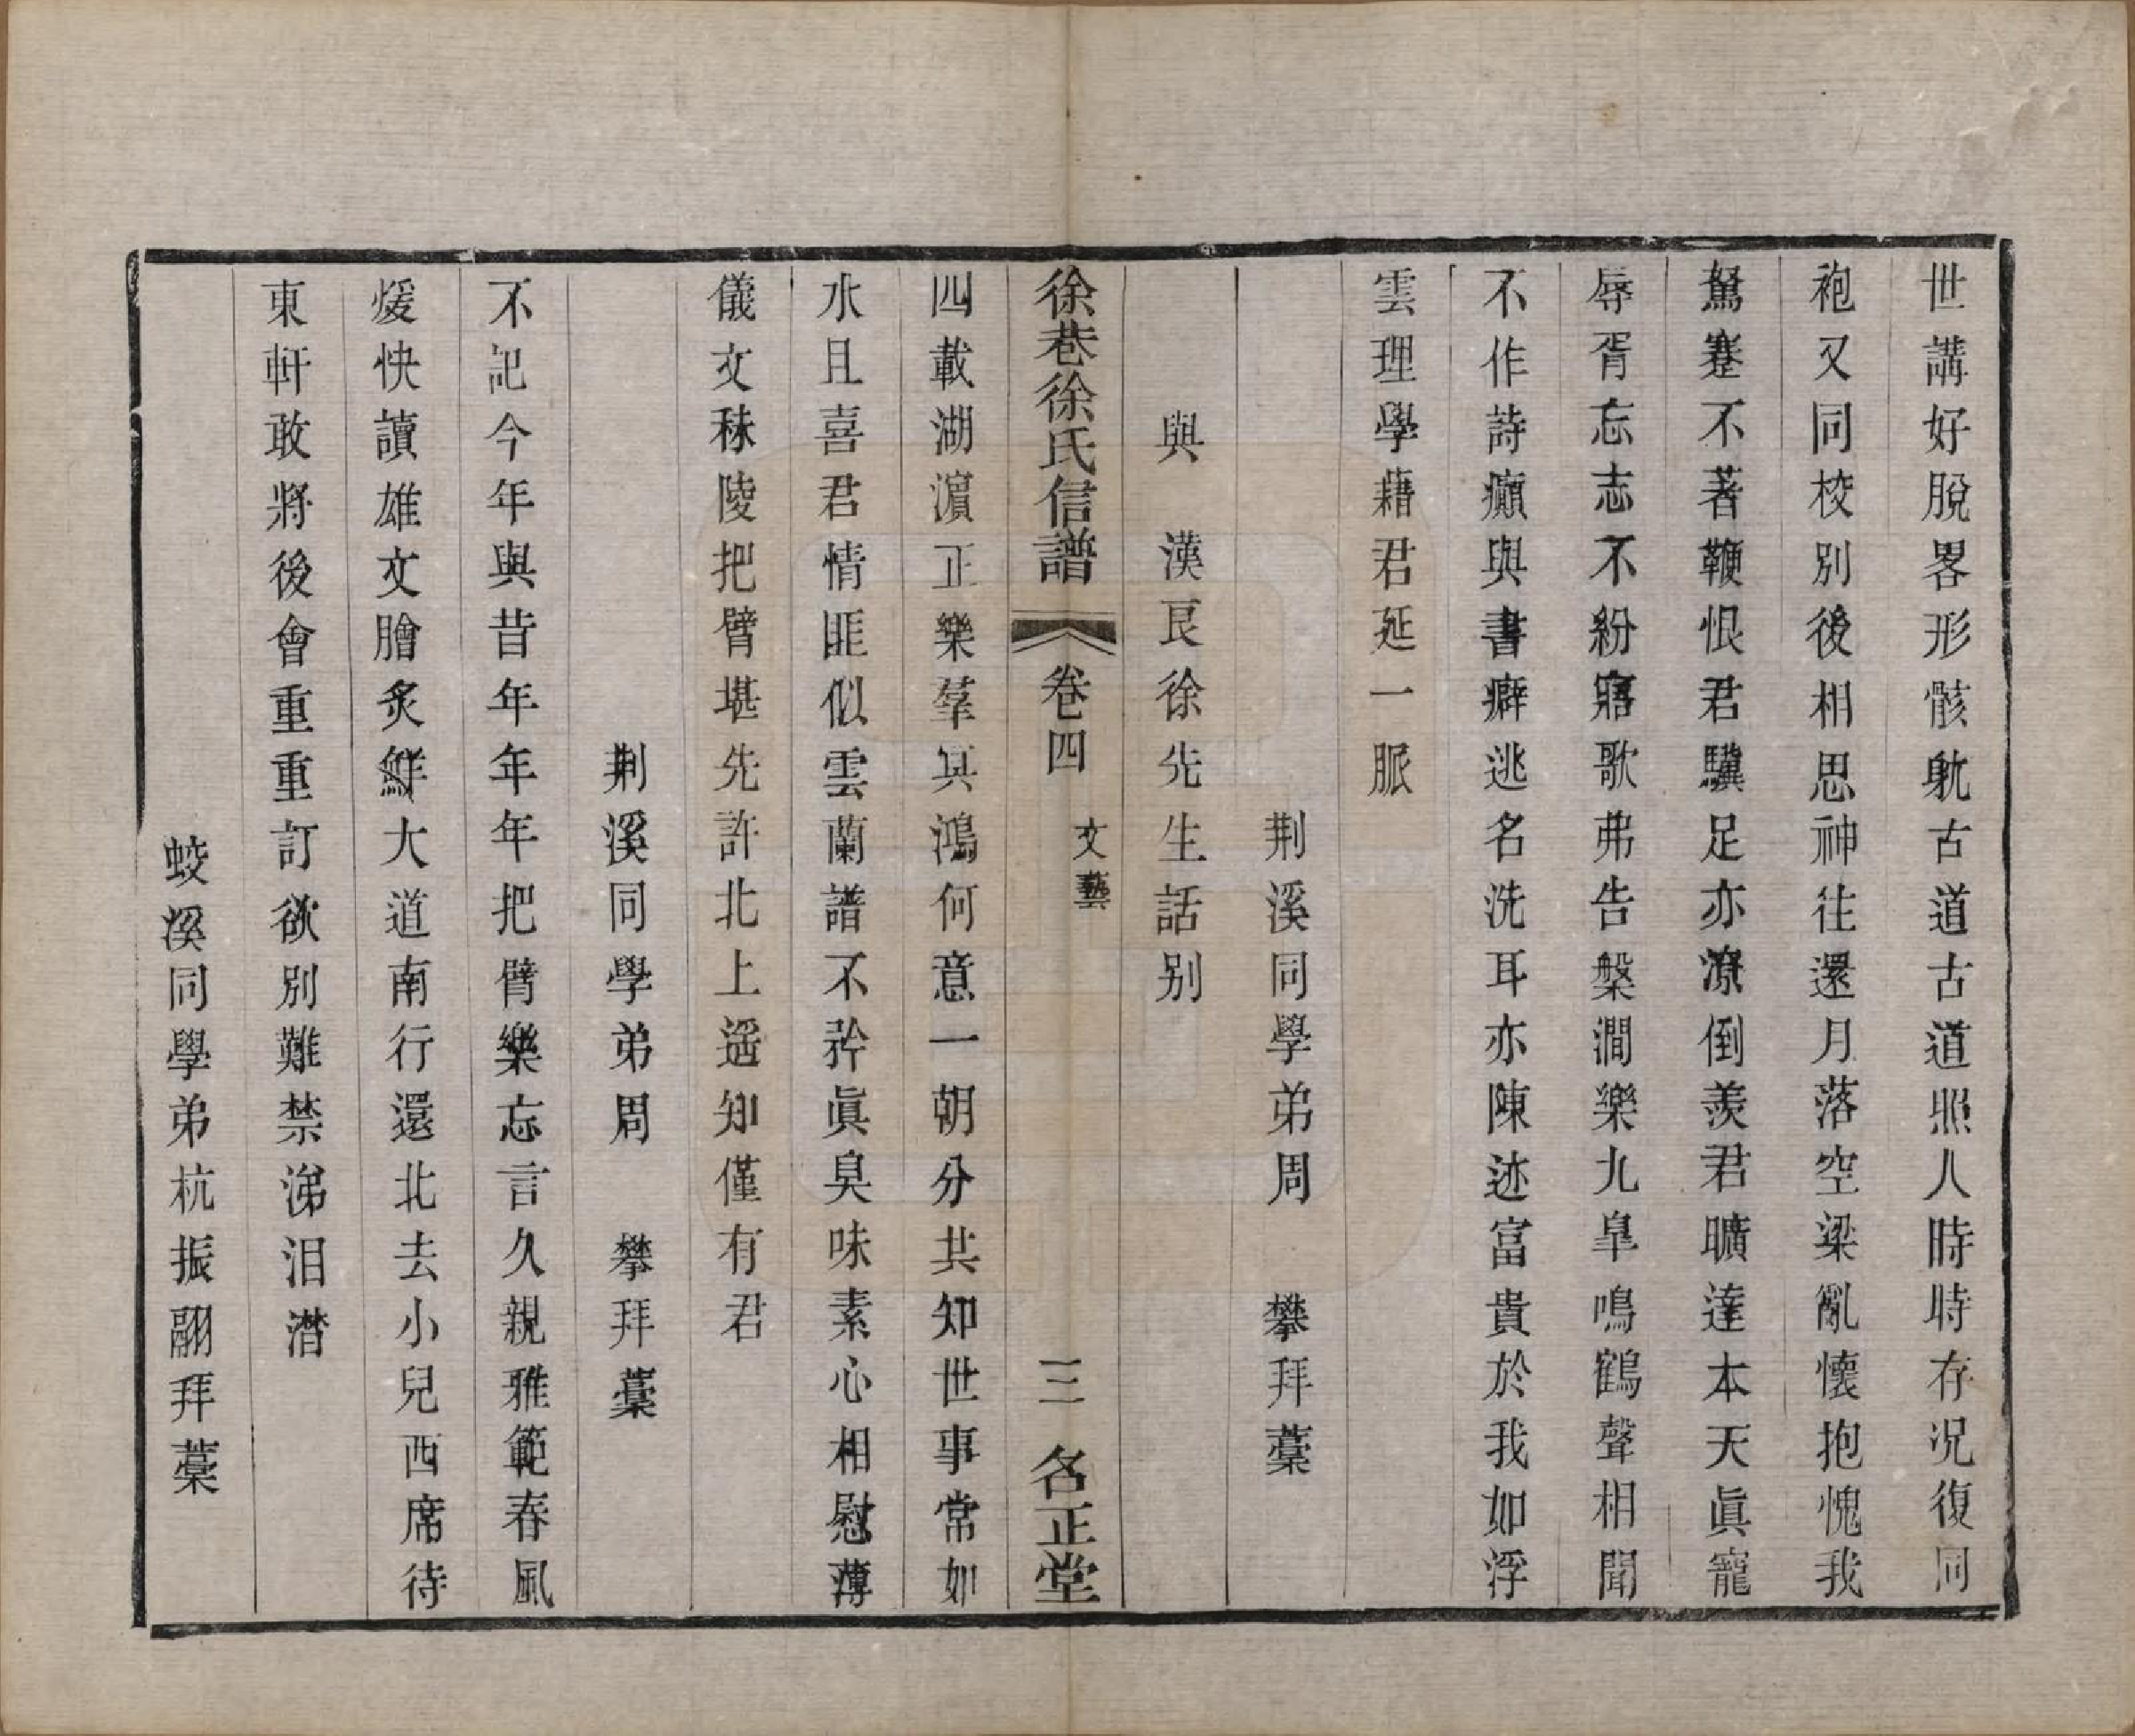 世講好脫畧形骸躭古道古道照人時時存況復同
袍又同校別後相思神往還月落空梁亂懷抱愧我
駑蹇不著鞭恨君驥足亦潦倒羨君曠達本天眞寵
辱胥忘志不紛寤歌弗告槃澗樂九皐鳴鶴聲相聞
不作詩癲與書癖逃名洗耳亦陳迹富貴於我如浮
雲理學藉君延一脈
荆溪同學弟周　攀拜藳
與　漢良徐先生話别
徐巷徐氏信譜　卷四　文藝　三　名正堂
四載湖濵正樂羣冥鴻何意一朝分共知世事常如
水且喜君情匪似雲蘭譜不矜眞臭味素心相慰薄
儀文秣陵把臂堪先許北上遥知僅有君
荆溪同學弟周　攀拜藳
不記今年與昔年年年把臂樂忘言久親雅範春風
煖快讀雄文膾炙鮮大道南行還北去小兒西席待
東軒敢將後會重重訂欲別難禁涕泪潸
蛟溪同學弟杭振翮拜藳